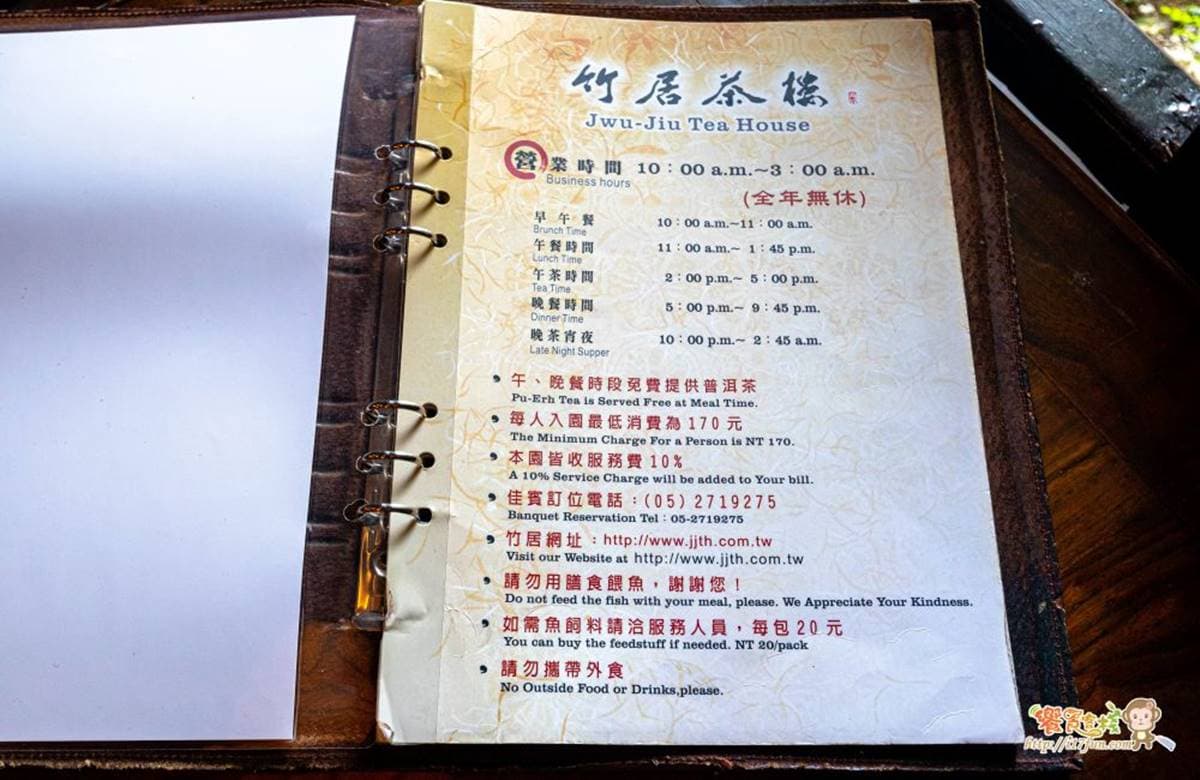 竹居茶樓
Jwu-Jiu Tea House
營業時間 10：00 a.m.~3：00 a.m.
Business hours
(全年無休)
早午餐 10：00 a.m.~11：00 a.m.
Brunch Time
午餐時間 11：00 a.m.~ 1：45 p.m.
Lunch Time
午茶時間 2：00 p.m.~ 5：00 p.m.
Tea Time
晚餐時間 5：00 p.m.~ 9：45 p.m.
Dinner Time
晚茶宵夜 10：00 p.m.~ 2：45 a.m.
Late Night Supper
午、晚餐時段免費提供普洱茶
Pu-Erh Tea is Served Free at Meal Time.
每人入園最低消費為170元
The Minimum Charge For a Person is NT 170.
本園皆收服務費10%
A 10% Service Charge will be added to Your bill.
佳賓訂位電話：(05)2719275
Banquet Reservation Tel：05-2719275
竹居網址：http://www.jjth.com.tw
Visit our Website at http://www.jjth.com.tw
請勿用膳食餵魚，謝謝您！
Do not feed the fish with your meal, please. We Appreciate Your Kindness.
如需魚飼料請洽服務人員，每包20元
You can buy the feedstuff if needed. NT 20/pack
請勿攜帶外食
No Outside Food or Drinks,please.
http://i17fun.com/